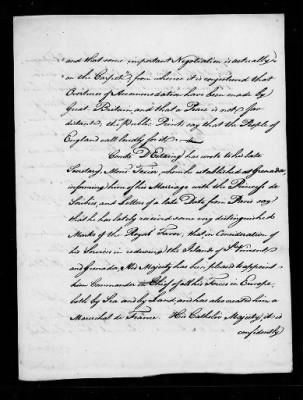 and that some important Negotiation is actually
on the Carpet, from whence it is conjectured that
Overtures of Accommodation have been made by
Great Britain, and that a Peace is not far
distant, the Public Prints say that the People of
England call loudly for it. —
Comte D'Estaing has wrote to his late
Secretary, Monsr. who he established at Grenada,
informing him of his Marriage with the Princess de
and Letters of a late Date from Paris say
that he has lately received some very distinguished
Marks of the Royal Favor, that in Consideration of
his Services in reducing the Islands of St. Vincent
and Grenada, His Majesty has been pleased to appoint
him Commander in Chief of all his Forces in Europe,
both by Sea and by Land, and has also created him a
Marechal de France. His Catholic Majesty, it is
confidently